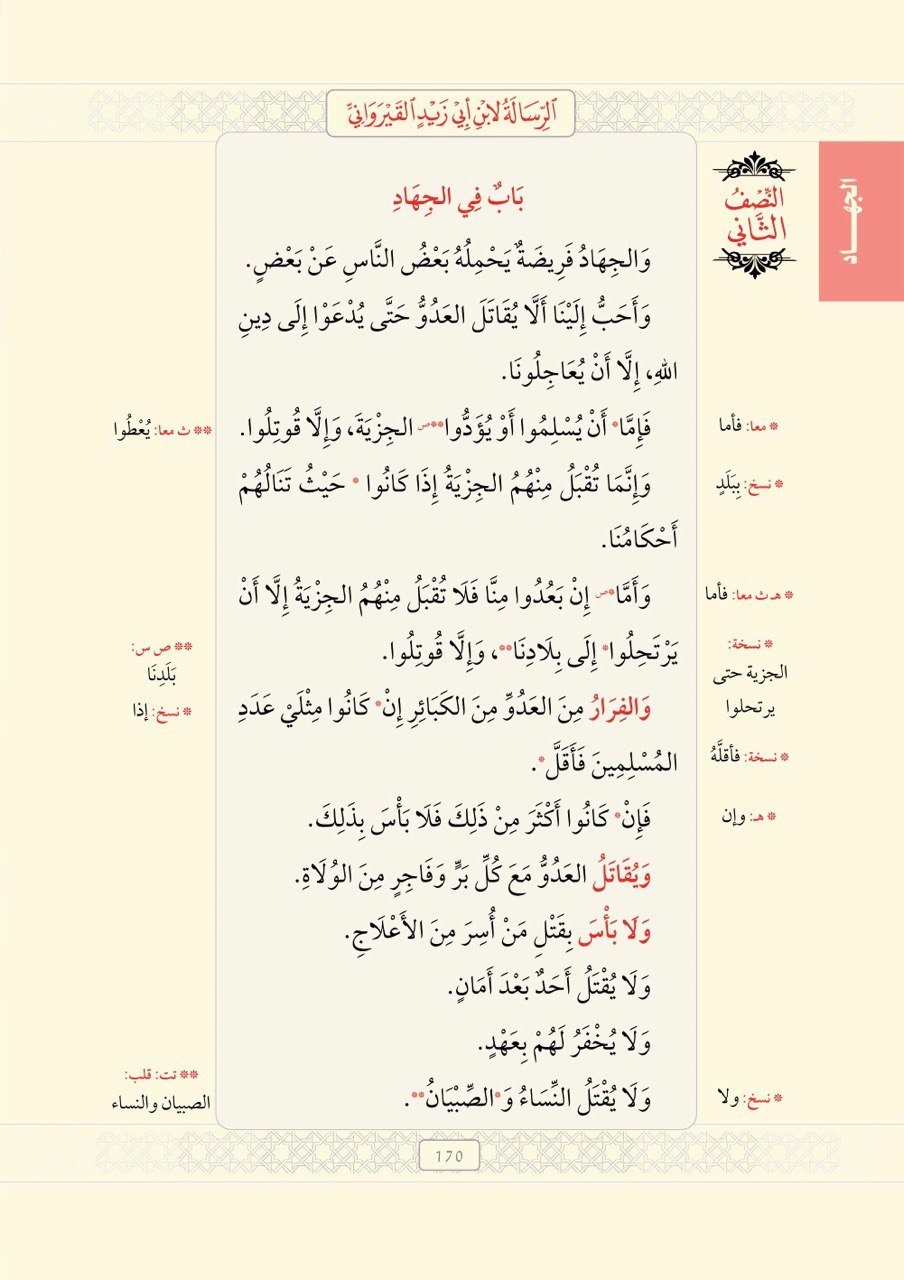 الرِّسَالَةُ لِابْنِ أَبِيْ زَيْدٍ القَيْرَوَانِيِّ
الجهـــاد
النِّصْفُ
الثَّانِي
بَابٌ فِي الجِهَادِ
وَالجِهَادُ فَرِيضَةٌ يَحْمِلُهُ بَعْضُ النَّاسِ عَنْ بَعْضٍ.
وَأَحَبُّ إِلَيْنَا أَلَّا يُقَاتَلَ العَدُوُّ حَتَّى يُدْعَوْا إِلَى دِينِ
اللهِ، إِلَّا أَنْ يُعَاجِلُونَا.
فَإِمَّا* أَنْ يُسْلِمُوا أَوْ يُؤَدُّوا**ص الجِزْيَةَ، وَإِلَّا قُوتِلُوا.
وَإِنَّمَا تُقْبَلُ مِنْهُمُ الجِزْيَةُ إِذَا كَانُوا * حَيْثُ تَنَالُهُمْ
أَحْكَامُنَا.
وَأَمَّا*ص إِنْ بَعُدُوا مِنَّا فَلَا تُقْبَلُ مِنْهُمُ الجِزْيَةُ إِلَّا أَنْ
يَرْتَحِلُوا* إِلَى بِلَادِنَا**، وَإِلَّا قُوتِلُوا.
وَالفِرَارُ مِنَ العَدُوِّ مِنَ الكَبَائِرِ إِنْ* كَانُوا مِثْلَيْ عَدَدِ
المُسْلِمِينَ فَأَقَلَّ*.
فَإِنْ* كَانُوا أَكْثَرَ مِنْ ذَلِكَ فَلَا بَأْسَ بِذَلِكَ.
وَيُقَاتَلُ العَدُوُّ مَعَ كُلِّ بَرٍّ وَفَاجِرٍ مِنَ الوُلَاةِ.
وَلَا بَأْسَ بِقَتْلِ مَنْ أُسِرَ مِنَ الأَعْلَاجِ.
وَلَا يُقْتَلُ أَحَدٌ بَعْدَ أَمَانٍ.
وَلَا يُخْفَرُ لَهُمْ بِعَهْدٍ.
وَلَا يُقْتَلُ النِّسَاءُ وَ*الصِّبْيَانُ**.
* معا: فأما
* نسخ: بِبَلَدٍ
* هـ ث معا: فأما
* نسخة:
الجزية حتى
يرتحلوا
* نسخة: فأقلَّهُ
* هـ: وإن
* نسخ: ولا
** ث معا: يُعْطُوا
** ص س:
بَلَدِنَا
* نسخ: إذا
** تت: قلب:
الصبيان والنساء
170